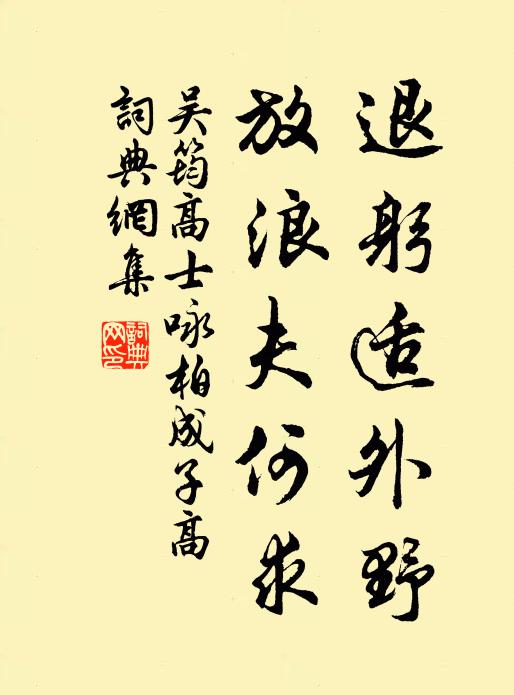 退躬适外野
放浪夫何求
吴筠高士咏柏成子高
詞典網集
詞典
网印